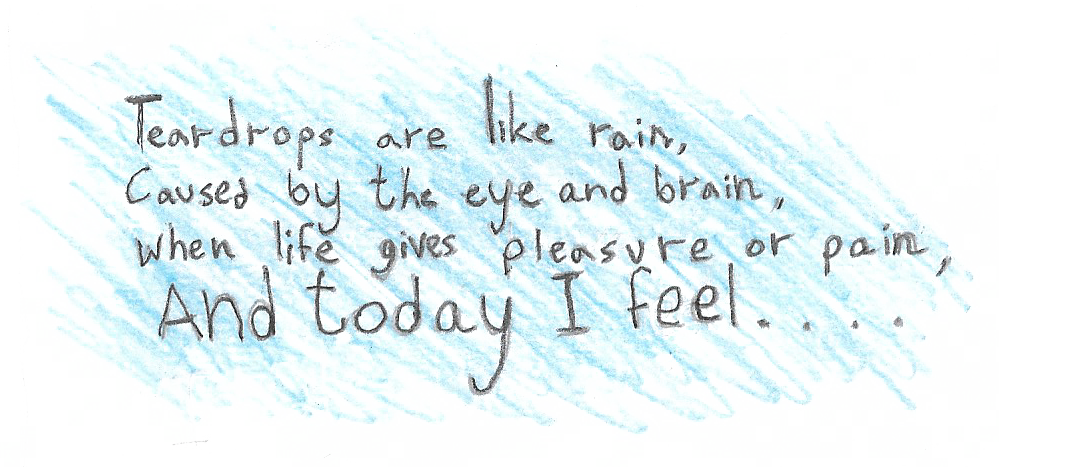 Teardrops are like rain,
Caused by the eye and brain,
when life gives pleasure or pain,
And today I feel....